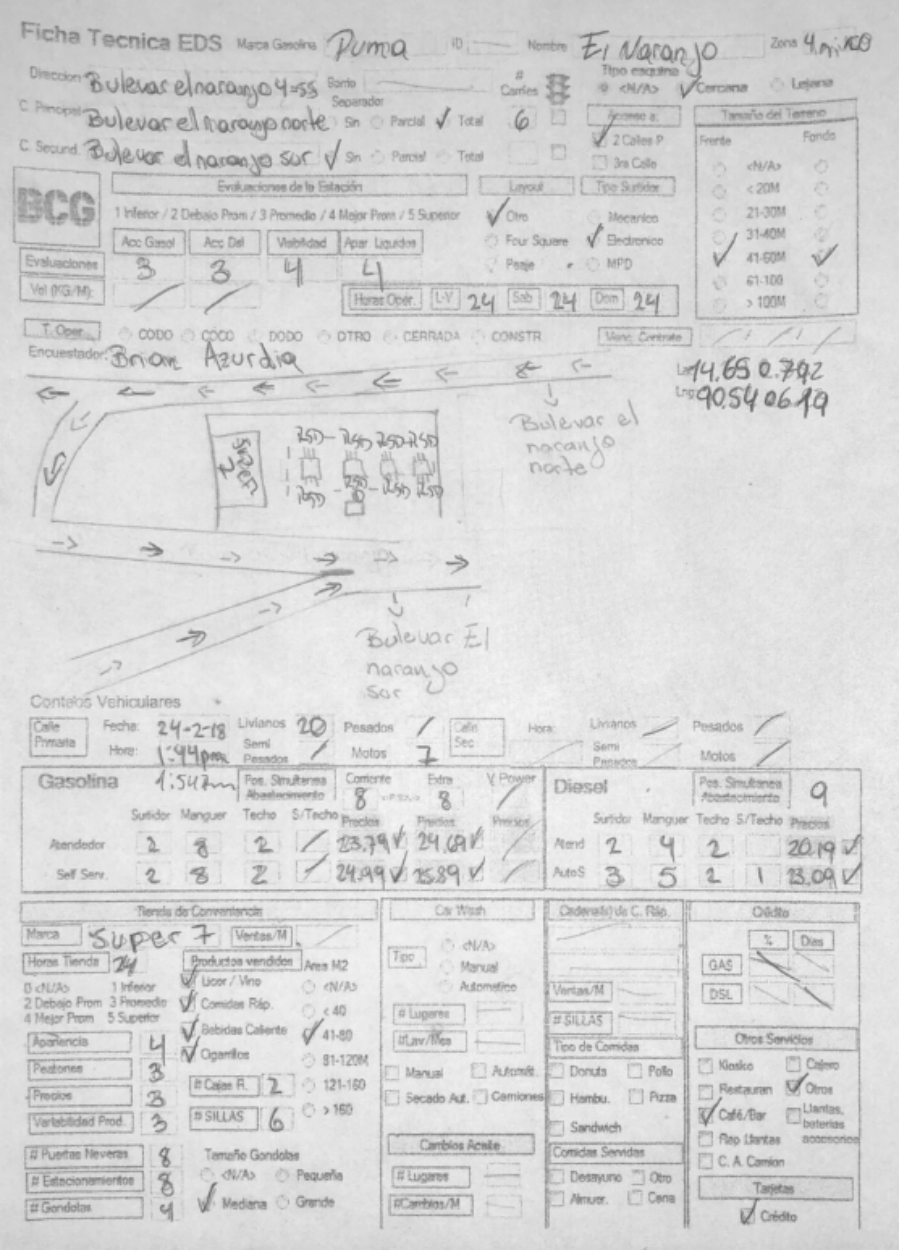 Ficha Tecnica EDS Marca Gasolina Puma ID Nombre El Naranjo Zona 4.mixco
Direccion Bulevar el naranjo 4-55 Barrio # Carriles Tipo esquina <N/A> Cercana Lejana
C. Principal Bulevar el naranjo norte Separador Sin Parcial Total 6 Acceso a: Tamaño del Terreno
C. Secund. Bulevar el naranjo sur Sin Parcial Total 2 Calles P Frente Fondo
3ra Calle <N/A>
BCG Evaluaciones de la Estación Layout Tipo Surtidor < 20M
1 Inferior / 2 Debajo Prom / 3 Promedio / 4 Mejor Prom / 5 Superior Otro Mecanico 21-30M
Acc Gasol Acc Dsl Visibilidad Apar. Liquidos Four Square Electronico 31-40M
Evaluaciones 3 3 4 4 Peaje MPD 41-60M
Vol (KG/M): Horas Oper. L-V 24 Sab 24 Dom 24 61-100
> 100M
T. Oper. CODO COCO DODO OTRO CERRADA CONSTR. Venc. Contrato
Encuestador: Brian Azurdia
Lat 14.650.792
Lng 90.540619
Bulevar el
naranjo
norte
SUPER 7
Bulevar El
naranjo
sur
Conteos Vehiculares
Calle Primaria Fecha: 24-2-18 Livianos 20 Pesados Calle Sec Hora: Livianos Pesados
Hora: 1:44pm Semi Pesados Motos 7 Semi Pesados Motos
1:54pm
Gasolina Pos. Simultanea Abastecimiento Corriente 8 Extra 8 V.Power Diesel Pos. Simultanea Abastecimiento 9
Surtidor Manguer Techo S/Techo Precios Precios Precios Surtidor Manguer Techo S/Techo Precios
Atendedor 2 8 2 23.79 24.69 Atend 2 4 2 20.19
Self Serv. 2 8 2 24.99 25.89 AutoS 3 5 2 1 23.09
Tienda de Conveniencia Car Wash Cadena(s) de C. Ráp. Crédito
Marca Super 7 Ventas/M <N/A> % Dias
Horas Tienda 24 Productos vendidos Area M2 Tipo Manual GAS
0 <N/A> 1 Inferior Licor / Vino <N/A> Automatico Ventas/M DSL
2 Debajo Prom 3 Promedio Comidas Ráp. < 40 # Lugares # SILLAS
4 Mejor Prom 5 Superior Bebidas Caliente 41-80 #Lav/Mes Otros Servicios
Apariencia 4 Cigarrillos 81-120M Tipo de Comidas Kiosko Cajero
Peatones 3 # Cajas R. 2 121-160 Manual Automát. Donuts Pollo Restauran Otros
Precios 3 > 160 Secado Aut. Camiones Hambu. Pizza Café/Bar Llantas, baterias accesorios
Variabilidad Prod. 3 # SILLAS 6 Sandwich Rep Llantas
# Puertas Neveras 8 Tamaño Gondolas Cambios Aceite Comidas Servidas C. A. Camion
# Estacionamientos 8 <N/A> Pequeña # Lugares Desayuno Otro Tarjetas
# Gondolas 4 Mediana Grande #Cambios/M Almuer. Cena Crédito